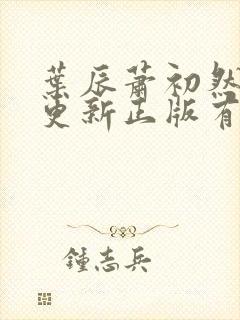 葉辰蕭初然
更新正版有
鍾志兵